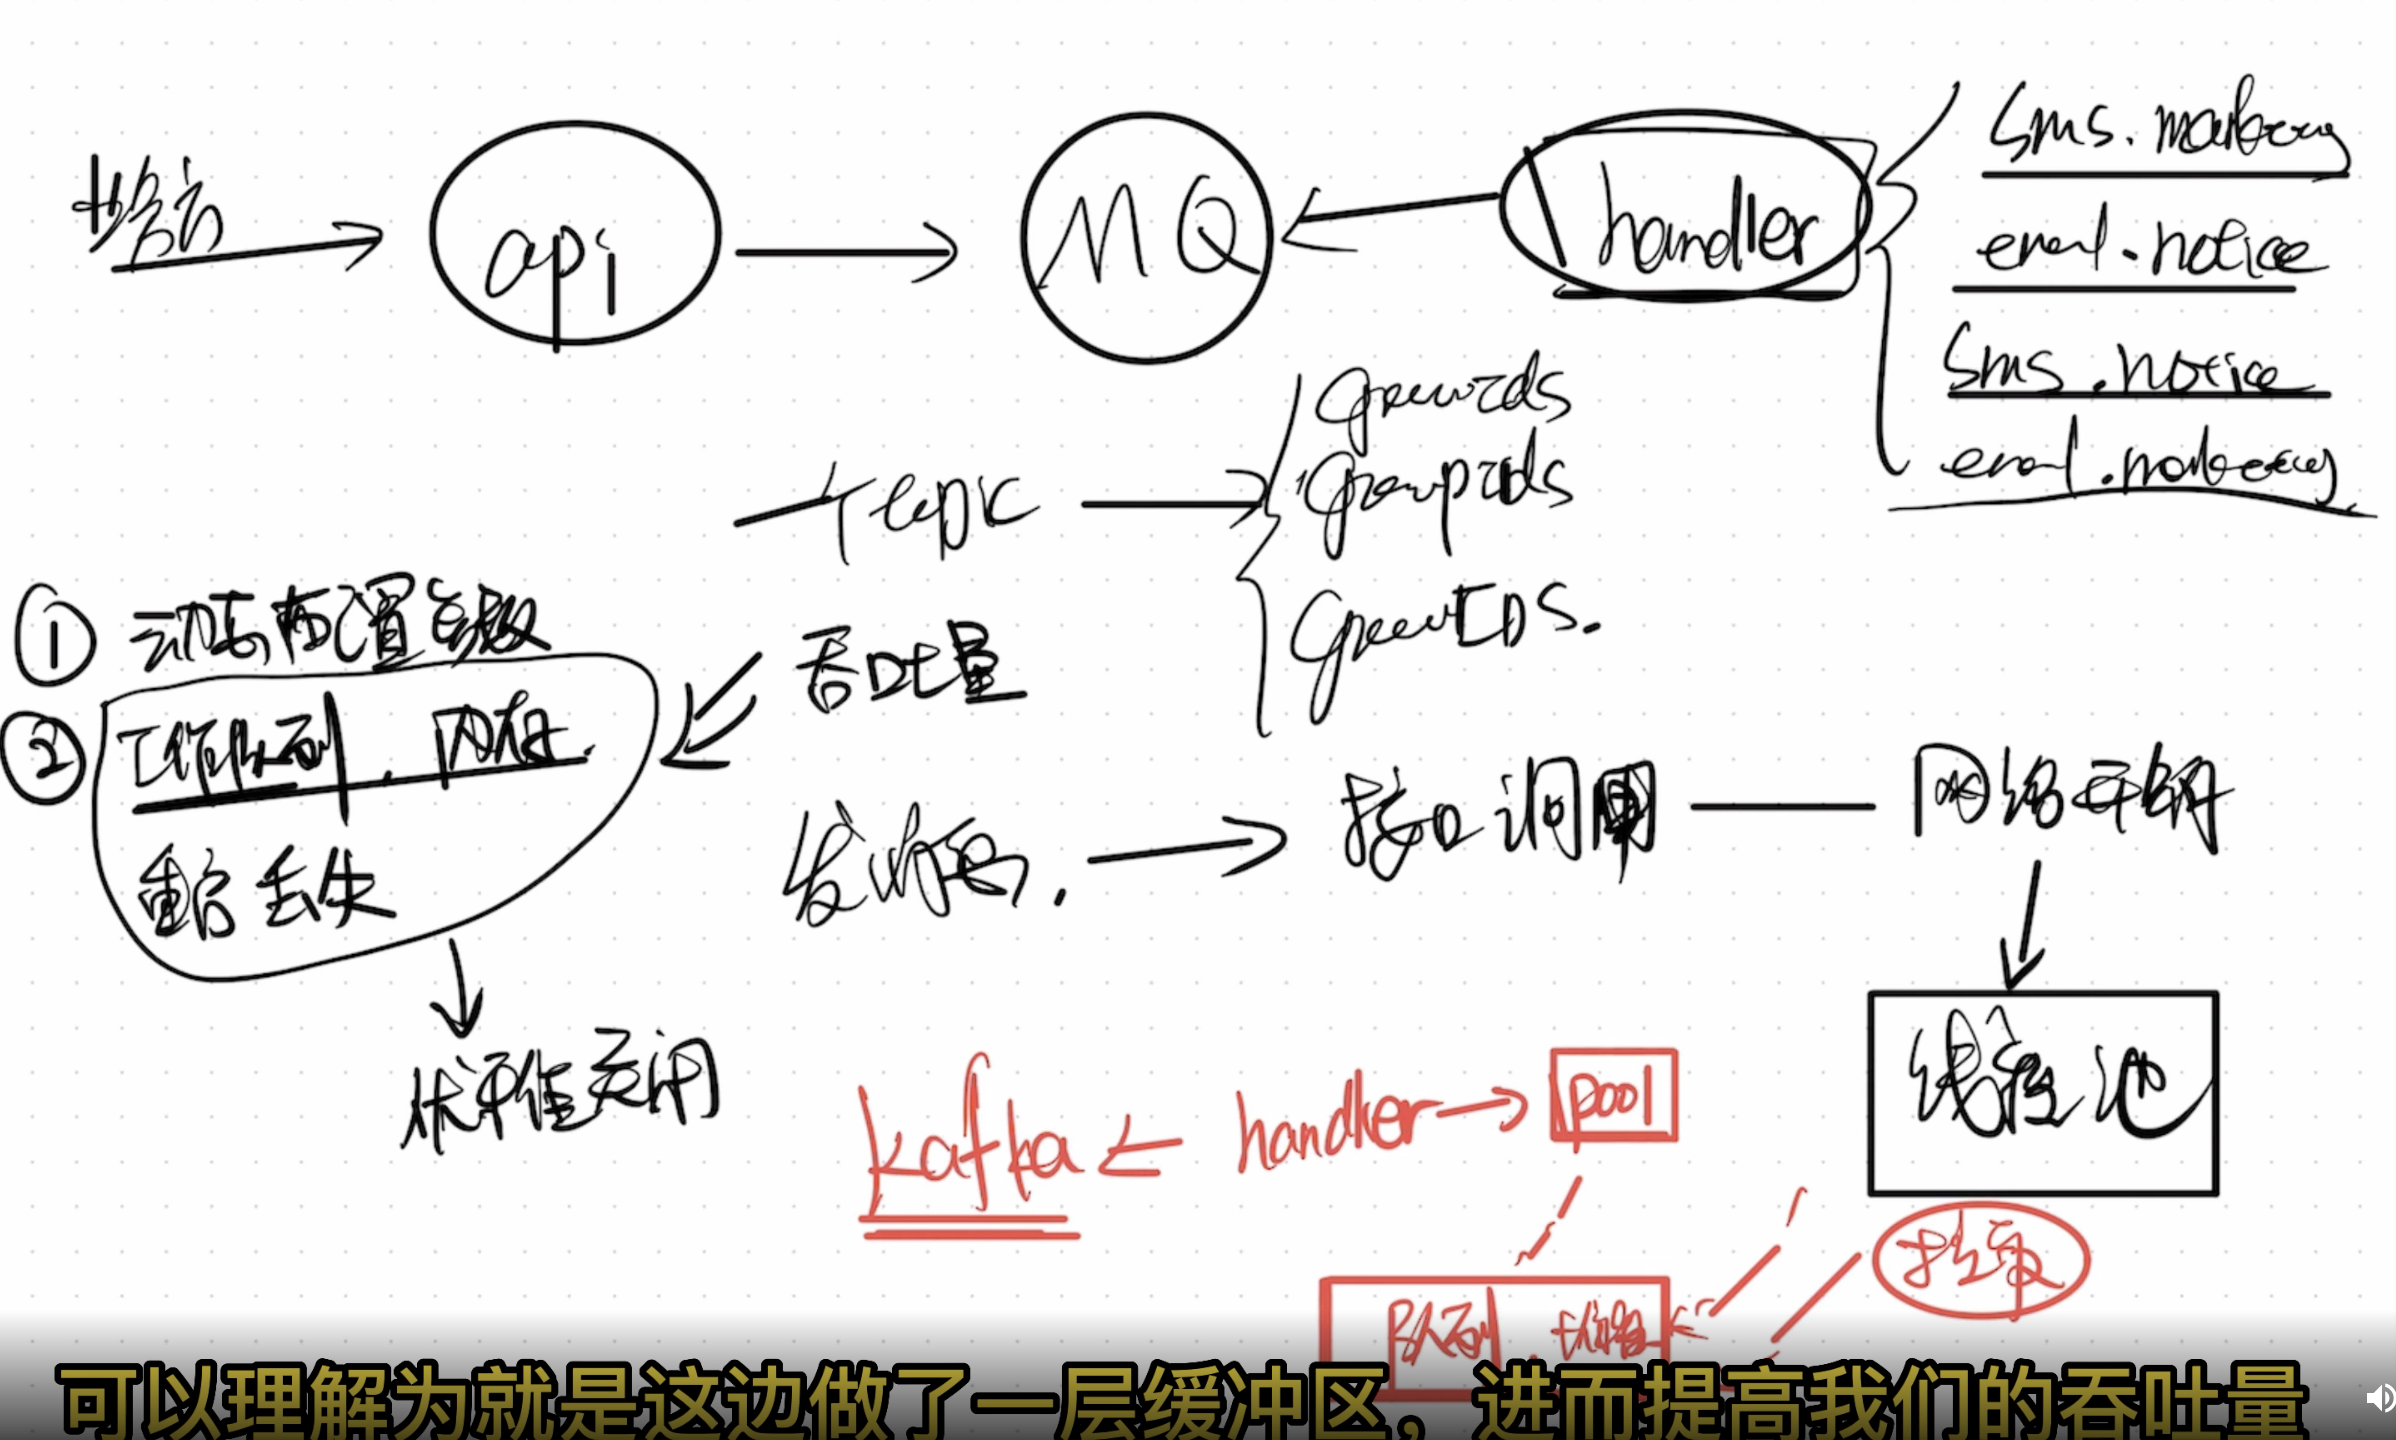 api
MQ
handler
sms.marketing
email.notice
sms.notice
email.marketing
一 Topic
groupIds
groupIds
groupIds.
① 动态配置参数
吞吐量
② 工作队列. 内存.
重启丢失
发消息.
接口调用
网络开销
线程池
优雅关闭
kafka
handler
pool
队列
可以理解为就是这边做了一层缓冲区，进而提高我们的吞吐量